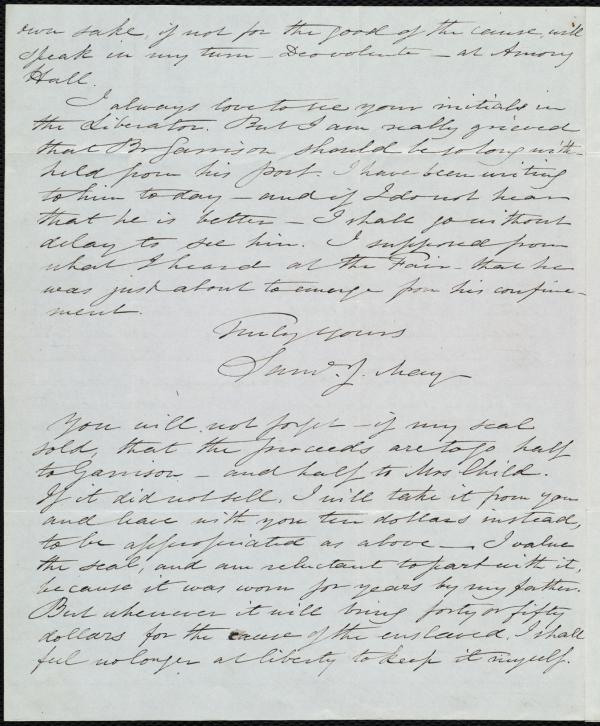 own sake, if not for the good of the cause, will
speak in my turn – Deo volente – at Amory
Hall.
I always love to see your initials in
the Liberator. But I am really grieved
that Br Garrison should be so long with-
held from his post. I have been writing
to him to day – and if I do not hear
that he is better – I shall go without
delay to see him. I supposed from
what I heard at the Fair – that he
was just about to emerge from his confine-
ment.
Truly yours
Saml. J. May
You will not forget – if my seal
sold, that the proceeds are to go half
to Garrison – and half to Mrs. Child.
If it did not sell, I will take it from you
and leave with you ten dollars instead,
to be appropriated as above – I value
the seal, and am reluctant to part with it,
because it was worn for years by my father.
But whenever it will bring forty or fifty
dollars for the cause of the enslaved, I shall
feel no longer at liberty to keep it myself.